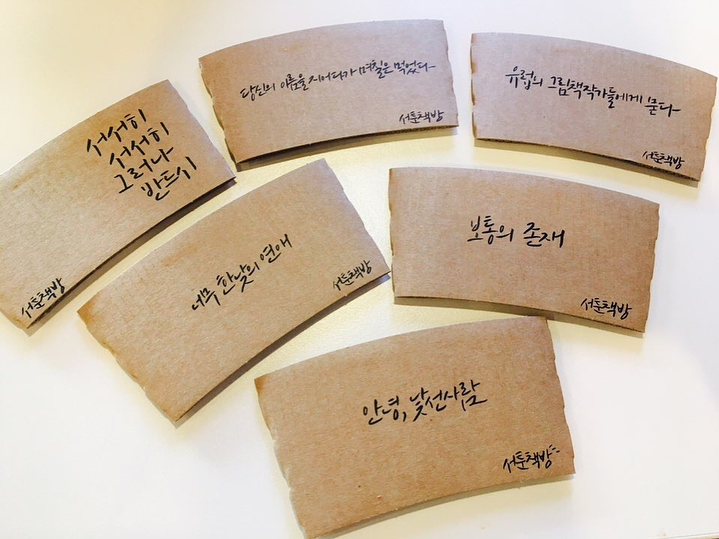 당신의 이름을 지어다가 며칠은 먹었다
서툰책방
유럽의 그림책작가들에게 묻다
서툰책방
서서히
서서히
그러나
반드시
서툰책방
너무 한낮의 연애
서툰책방
보통의 존재
서툰책방
안녕, 낯선사람
서툰책방